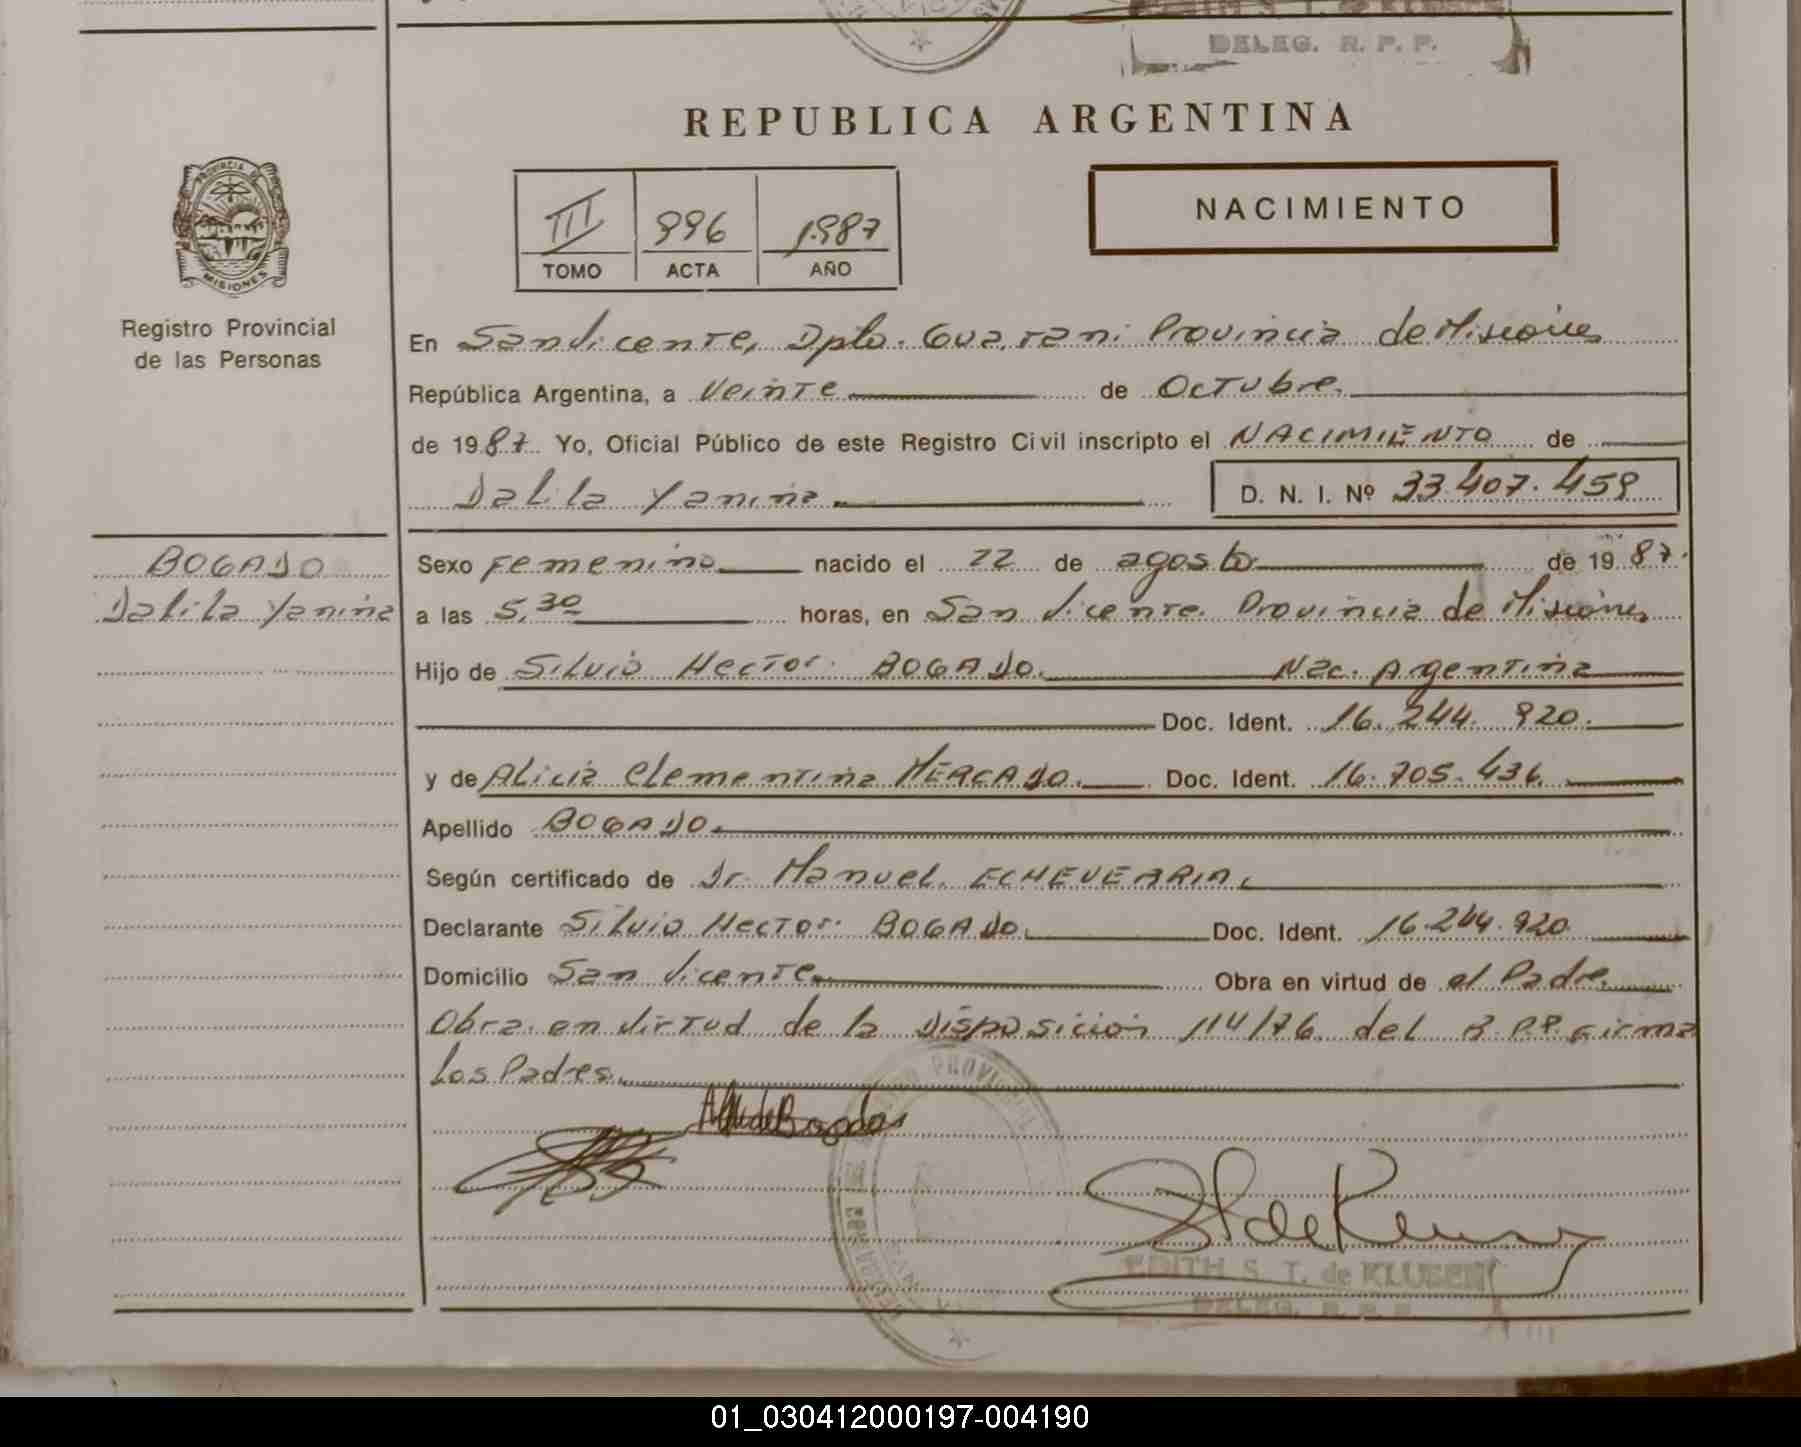 DELEG. R. P. P.
REPUBLICA ARGENTINA
III 996 1987
TOMO ACTA AÑO
NACIMIENTO
PROVINCIA DE
MISIONES
Registro Provincial
de las Personas
En San Vicente, Dpto. Guarani Provincia de Misiones
República Argentina, a Veinte de Octubre
de 1987 Yo, Oficial Público de este Registro Civil inscripto el NACIMIENTO de
Dalila Yanina D. N. I. Nº 33.407.459
BOGADO
Dalila Yanina
Sexo Femenino nacido el 22 de agosto de 1987.
a las 5,30 horas, en San Vicente. Provincia de Misiones
Hijo de Silvio Hector BOGADO. Nac. Argentina
Doc. Ident. 16.244.920.
y de Alicia Clementina MERCADO. Doc. Ident. 16.705.436.
Apellido BOGADO.
Según certificado de Dr. Manuel ECHEVERRIA,
Declarante Silvio Hector BOGADO. Doc. Ident. 16.244.920
Domicilio San Vicente Obra en virtud de el Padre.
Obra en virtud de la Disposición 114/76 del R.P.P. Firma
los Padres.
EDITH S. T. de KLUSEN
DELEG. R. P. P.
01_030412000197-004190